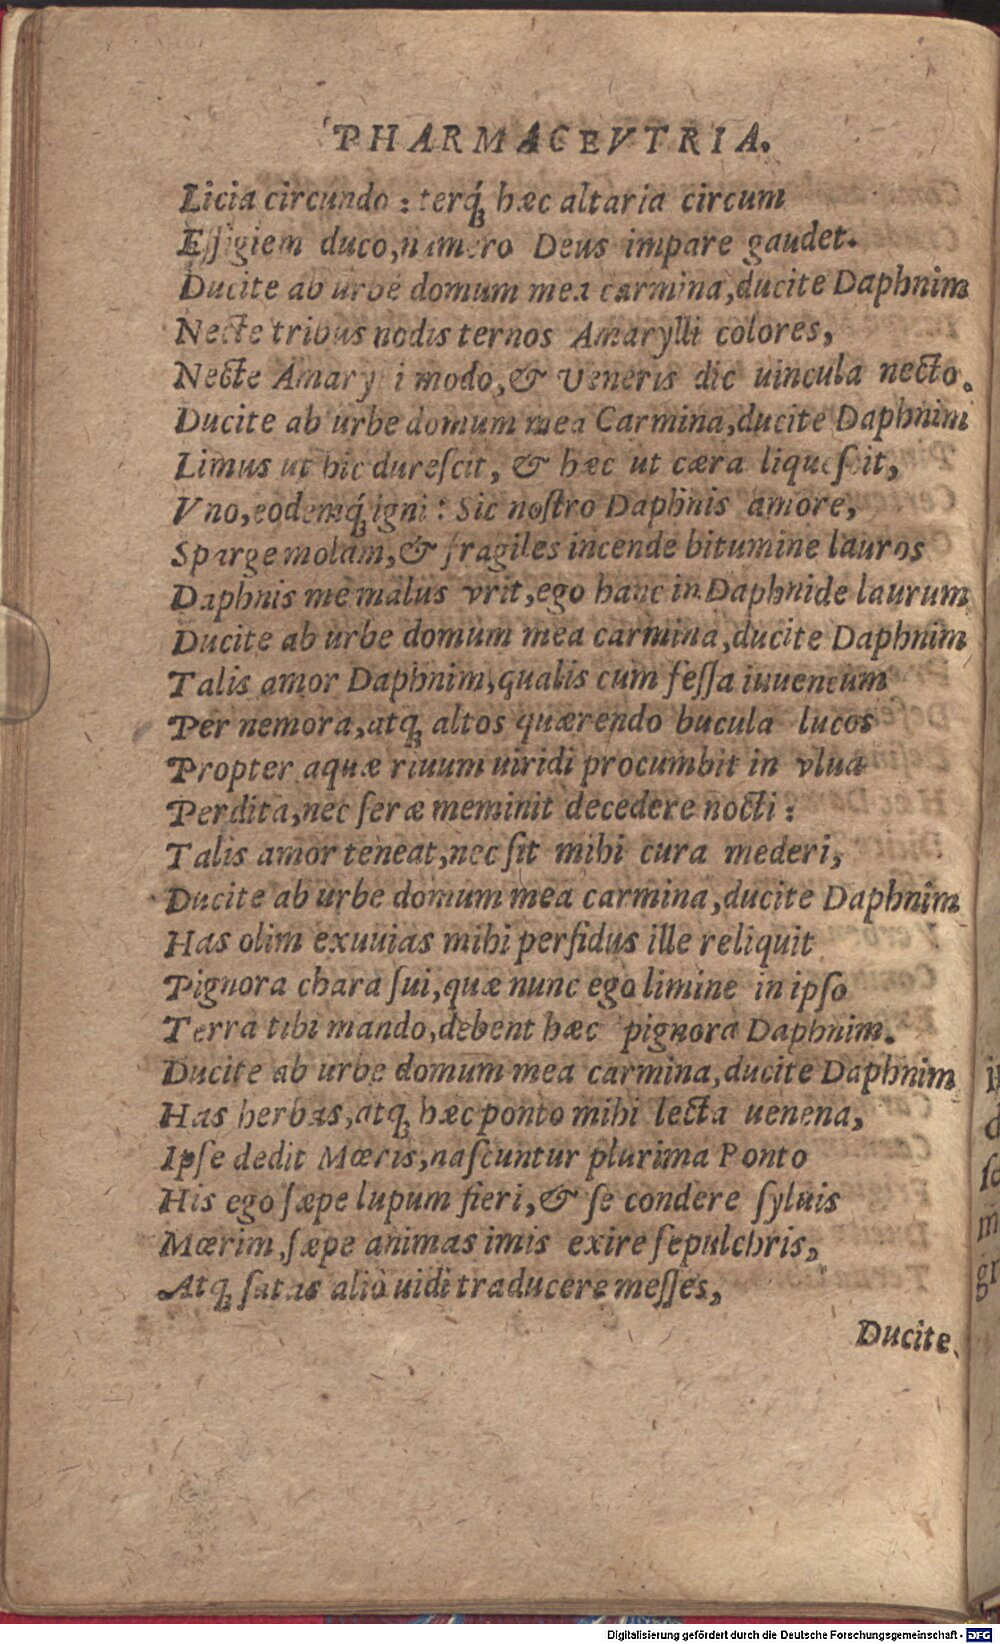 PHARMACEVTRIA.
Licia circundo : terq́ꝫ hæc altaria circum
Effigiem duco, numero Deus impare gaudet.
Ducite ab urbe domum mea carmina, ducite Daphnim
Necte tribus nodis ternos Amarylli colores,
Necte Amarylli modo, & Veneris dic uincula necto.
Ducite ab urbe domum mea Carmina, ducite Daphnim
Limus ut hic dureſcit, & hæc ut cæra liqueſcit,
Vno, eodemq́ꝫ igni : Sic noſtro Daphnis amore,
Sparge molam, & fragiles incende bitumine lauros
Daphnis me malus vrit, ego hanc in Daphnide laurum
Ducite ab urbe domum mea carmina, ducite Daphnim
Talis amor Daphnim, qualis cum feſſa iuuencum
Per nemora, atqꝫ altos quærendo bucula lucos
Propter aquæ riuum uiridi procumbit in vlua
Perdita, nec ſeræ meminit decedere nocti :
Talis amor teneat, nec ſit mihi cura mederi,
Ducite ab urbe domum mea carmina, ducite Daphnim
Has olim exuuias mihi perfidus ille reliquit
Pignora chara ſui, quæ nunc ego limine in ipſo
Terra tibi mando, debent hæc pignora Daphnim.
Ducite ab urbe domum mea carmina, ducite Daphnim
Has herbas, atqꝫ hæc ponto mihi lecta uenena,
Ipſe dedit Mœris, naſcuntur plurima Ponto
His ego ſæpe lupum fieri, & ſe condere ſyluis
Mœrim, ſæpe animas imis exire ſepulchris,
Atqꝫ ſatas aliò uidi traducere meſſes,
Ducite
Digitalisierung gefördert durch die Deutsche Forschungsgemeinschaft - DFG